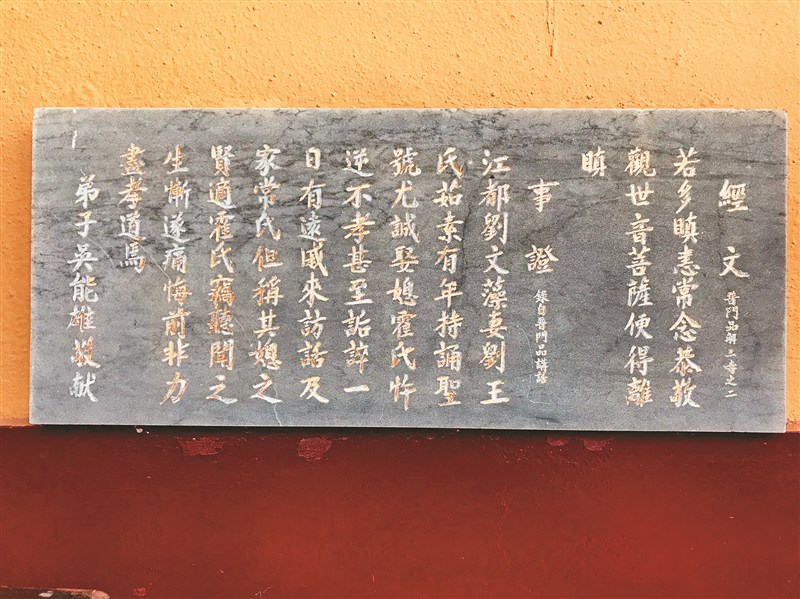 經文 普門品解三毒之二
若多瞋恚常念恭敬
觀世音菩薩便得離
瞋
事證 錄自普門品講話
江都劉文藻妻劉王
氏茹素有年持誦聖
號尤誠娶媳霍氏忤
逆不孝甚至詬誶一
日有遠戚來訪話及
家常氏但稱其媳之
賢適霍氏竊聽聞之
生慚遂痛悔前非力
盡孝道焉
弟子吳能雄敬献